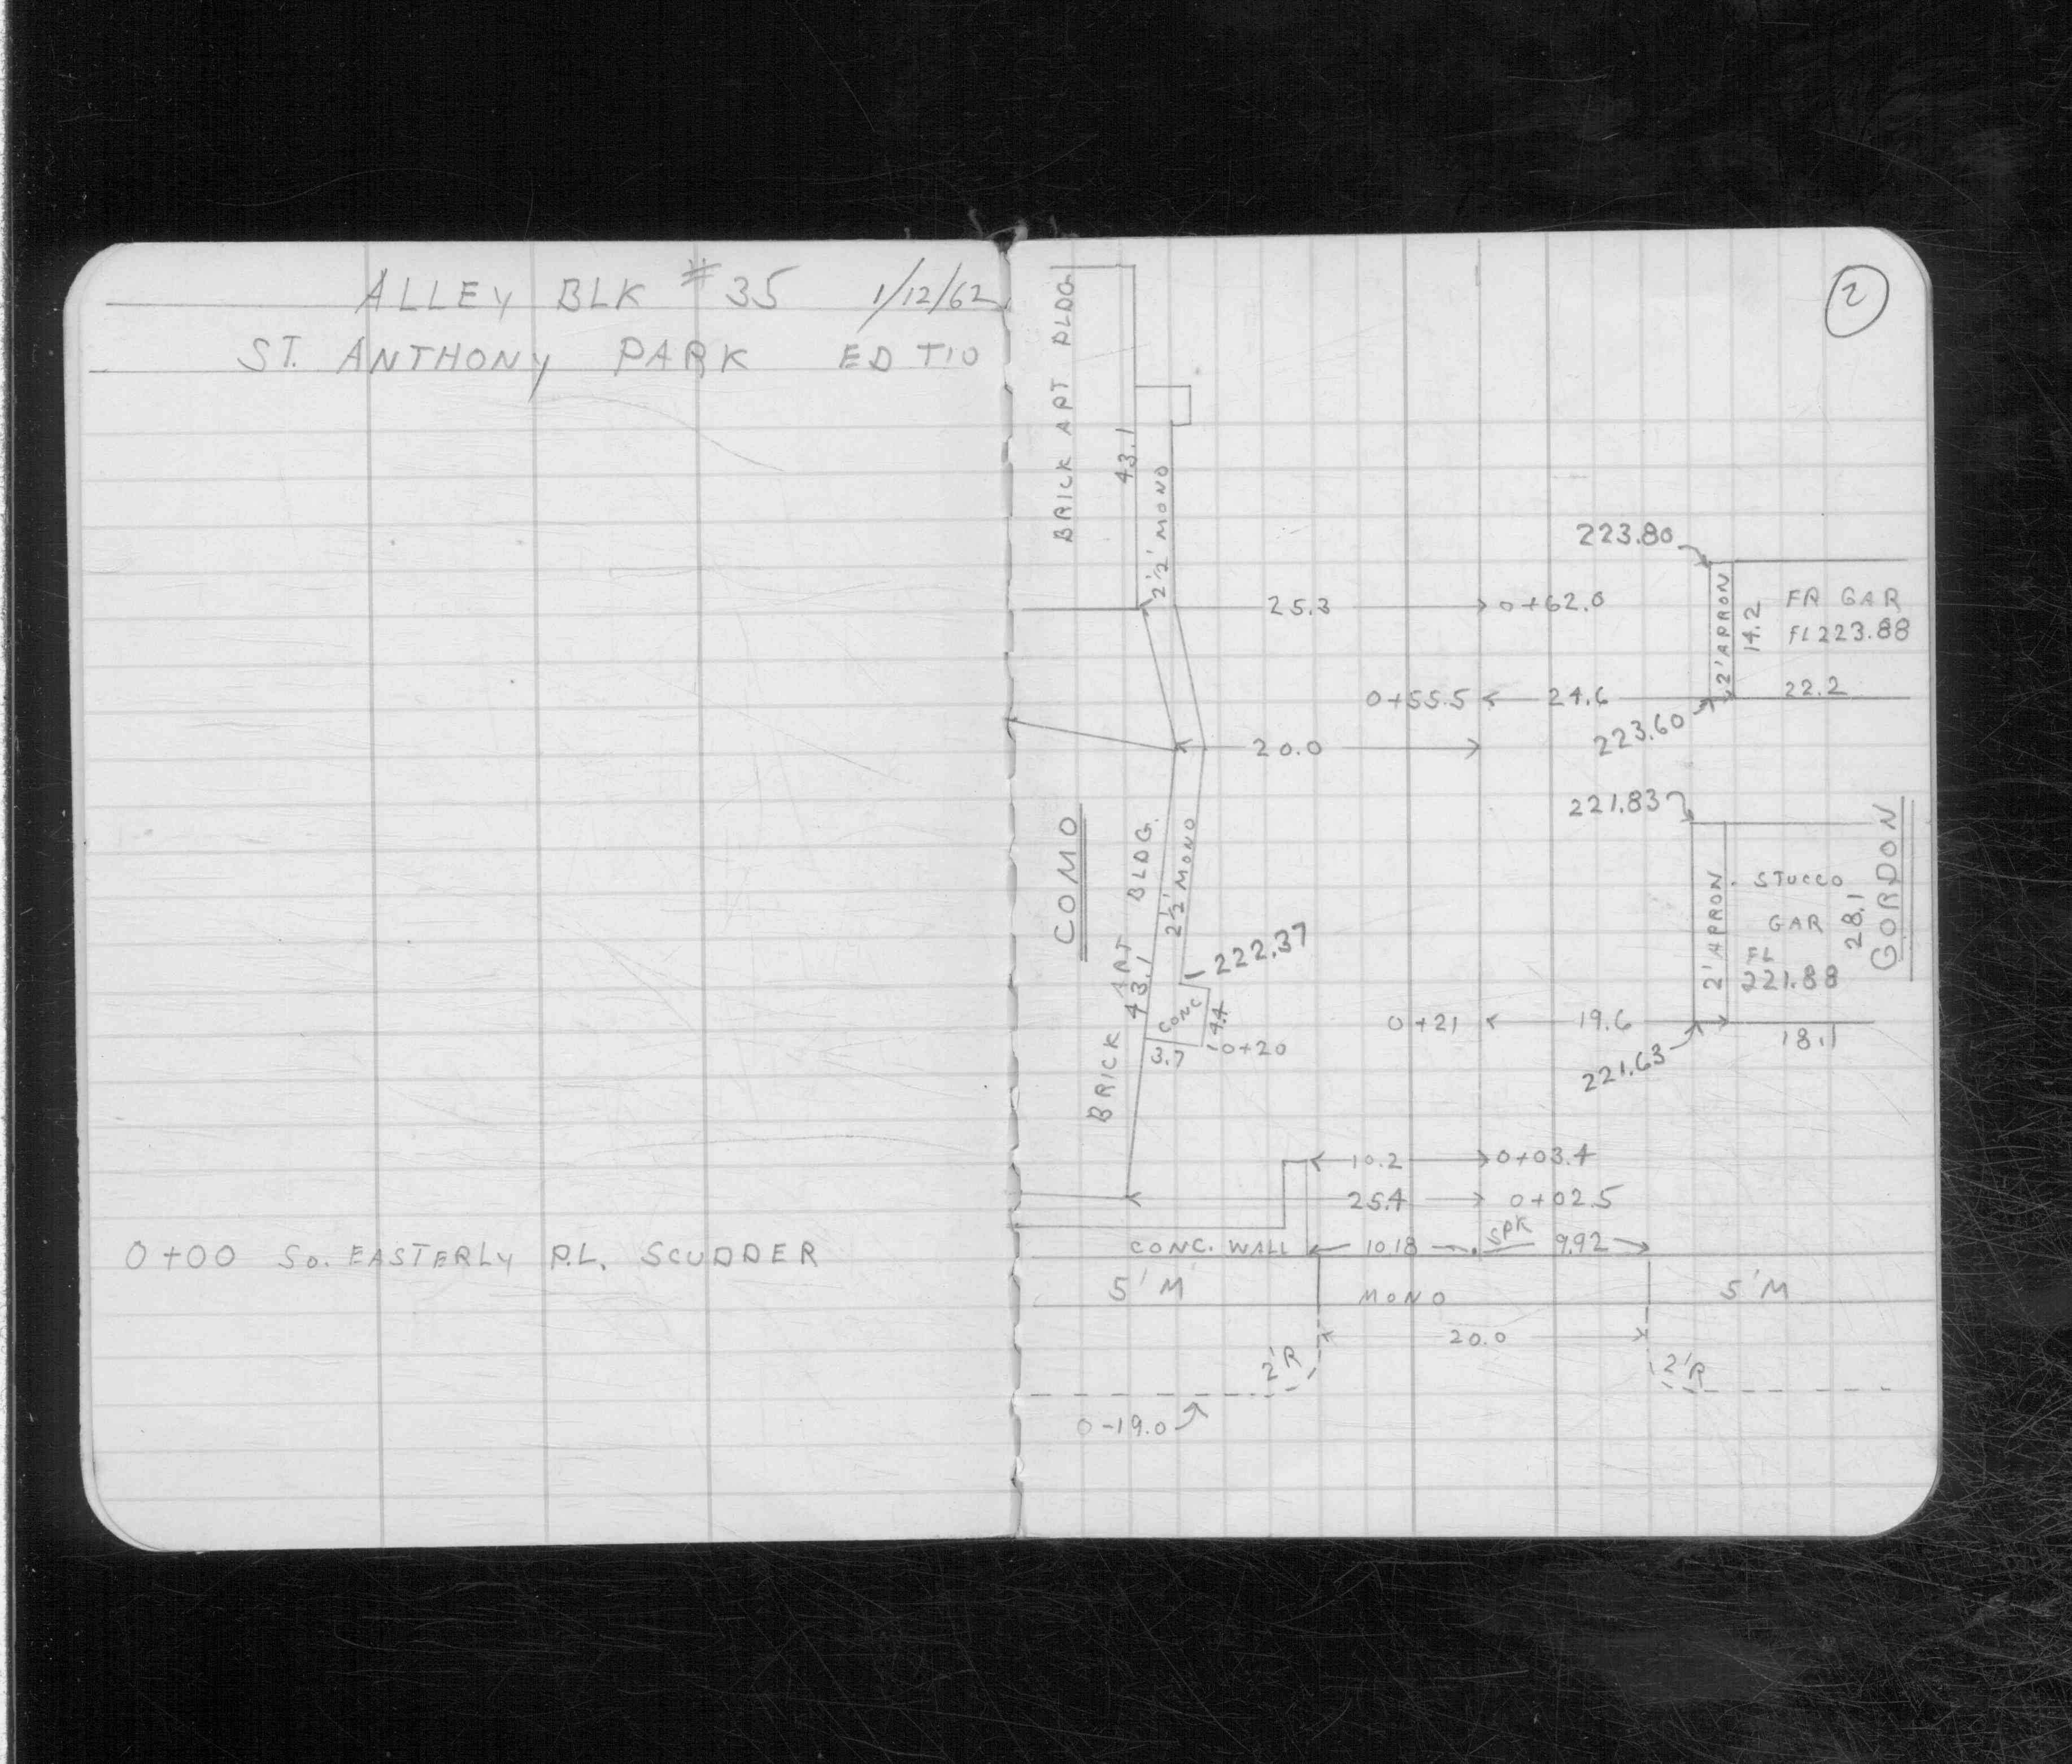 ALLEY BLK #35 1/12/62
ST. ANTHONY PARK ED T10
0+00 SO. EASTERLY P.L. SCUDDER
2
BRICK APT BLDG
43.1
2½' MONO
223.80
2' APRON
14.2
FR GAR
FL 223.88
22.2
25.3 0+62.0
0+55.5 24.6
223.60
20.0
221.83
COMO
BRICK APT BLDG.
43.1
2½' MONO
222.37
CONC
4.4
3.7
0+20
2' APRON
STUCCO
GAR
FL
221.88
28.1
GORDON
0+21 19.6
18.1
221.63
10.2 0+03.4
25.4 0+02.5
CONC. WALL 10.18 SPK 9.92
5' M MONO 5' M
20.0
2'R 2'R
0-19.0